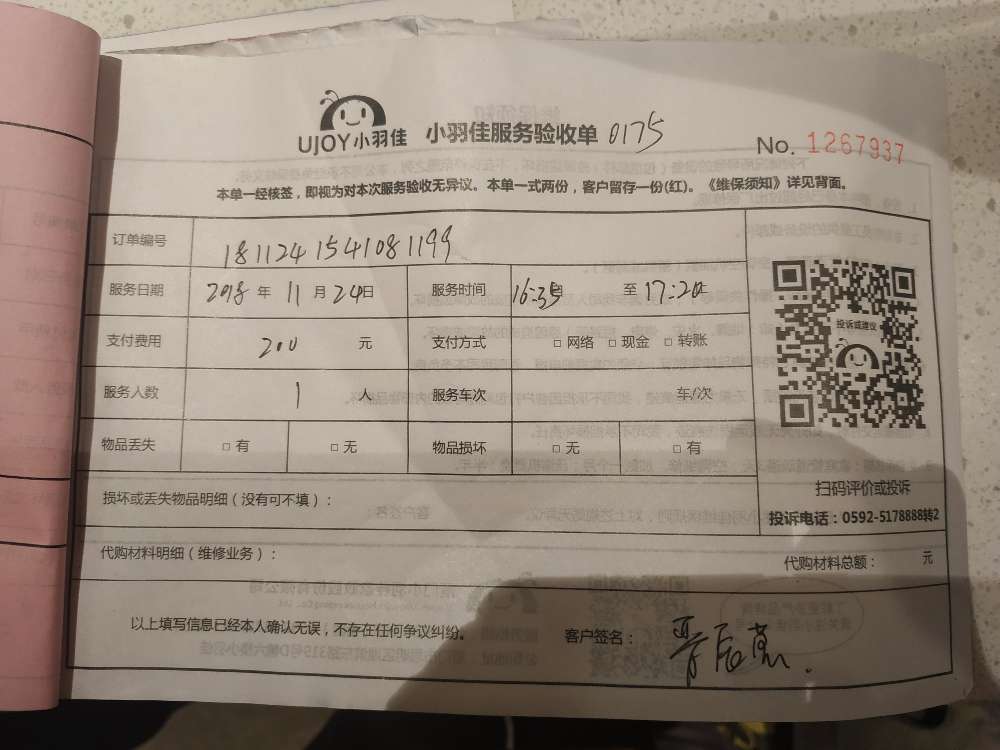 UJOY小羽佳 小羽佳服务验收单 0175 No. 1267937
本单一经核签，即视为对本次服务验收无异议。本单一式两份，客户留存一份(红)。《维保须知》详见背面。
订单编号 1811241541081199
服务日期 2018 年 11 月 24日 服务时间 16:35 至 17:20
支付费用 200 元 支付方式 □ 网络 □ 现金 □ 转账
投诉或建议
服务人数 1 人 服务车次 车/次
物品丢失 □ 有 □ 无 物品损坏 □ 无 □ 有
扫码评价或投诉
损坏或丢失物品明细（没有可不填）：
投诉电话：0592-5178888转2
代购材料明细（维修业务）： 代购材料总额： 元
以上填写信息已经本人确认无误，不存在任何争议纠纷。 客户签名：